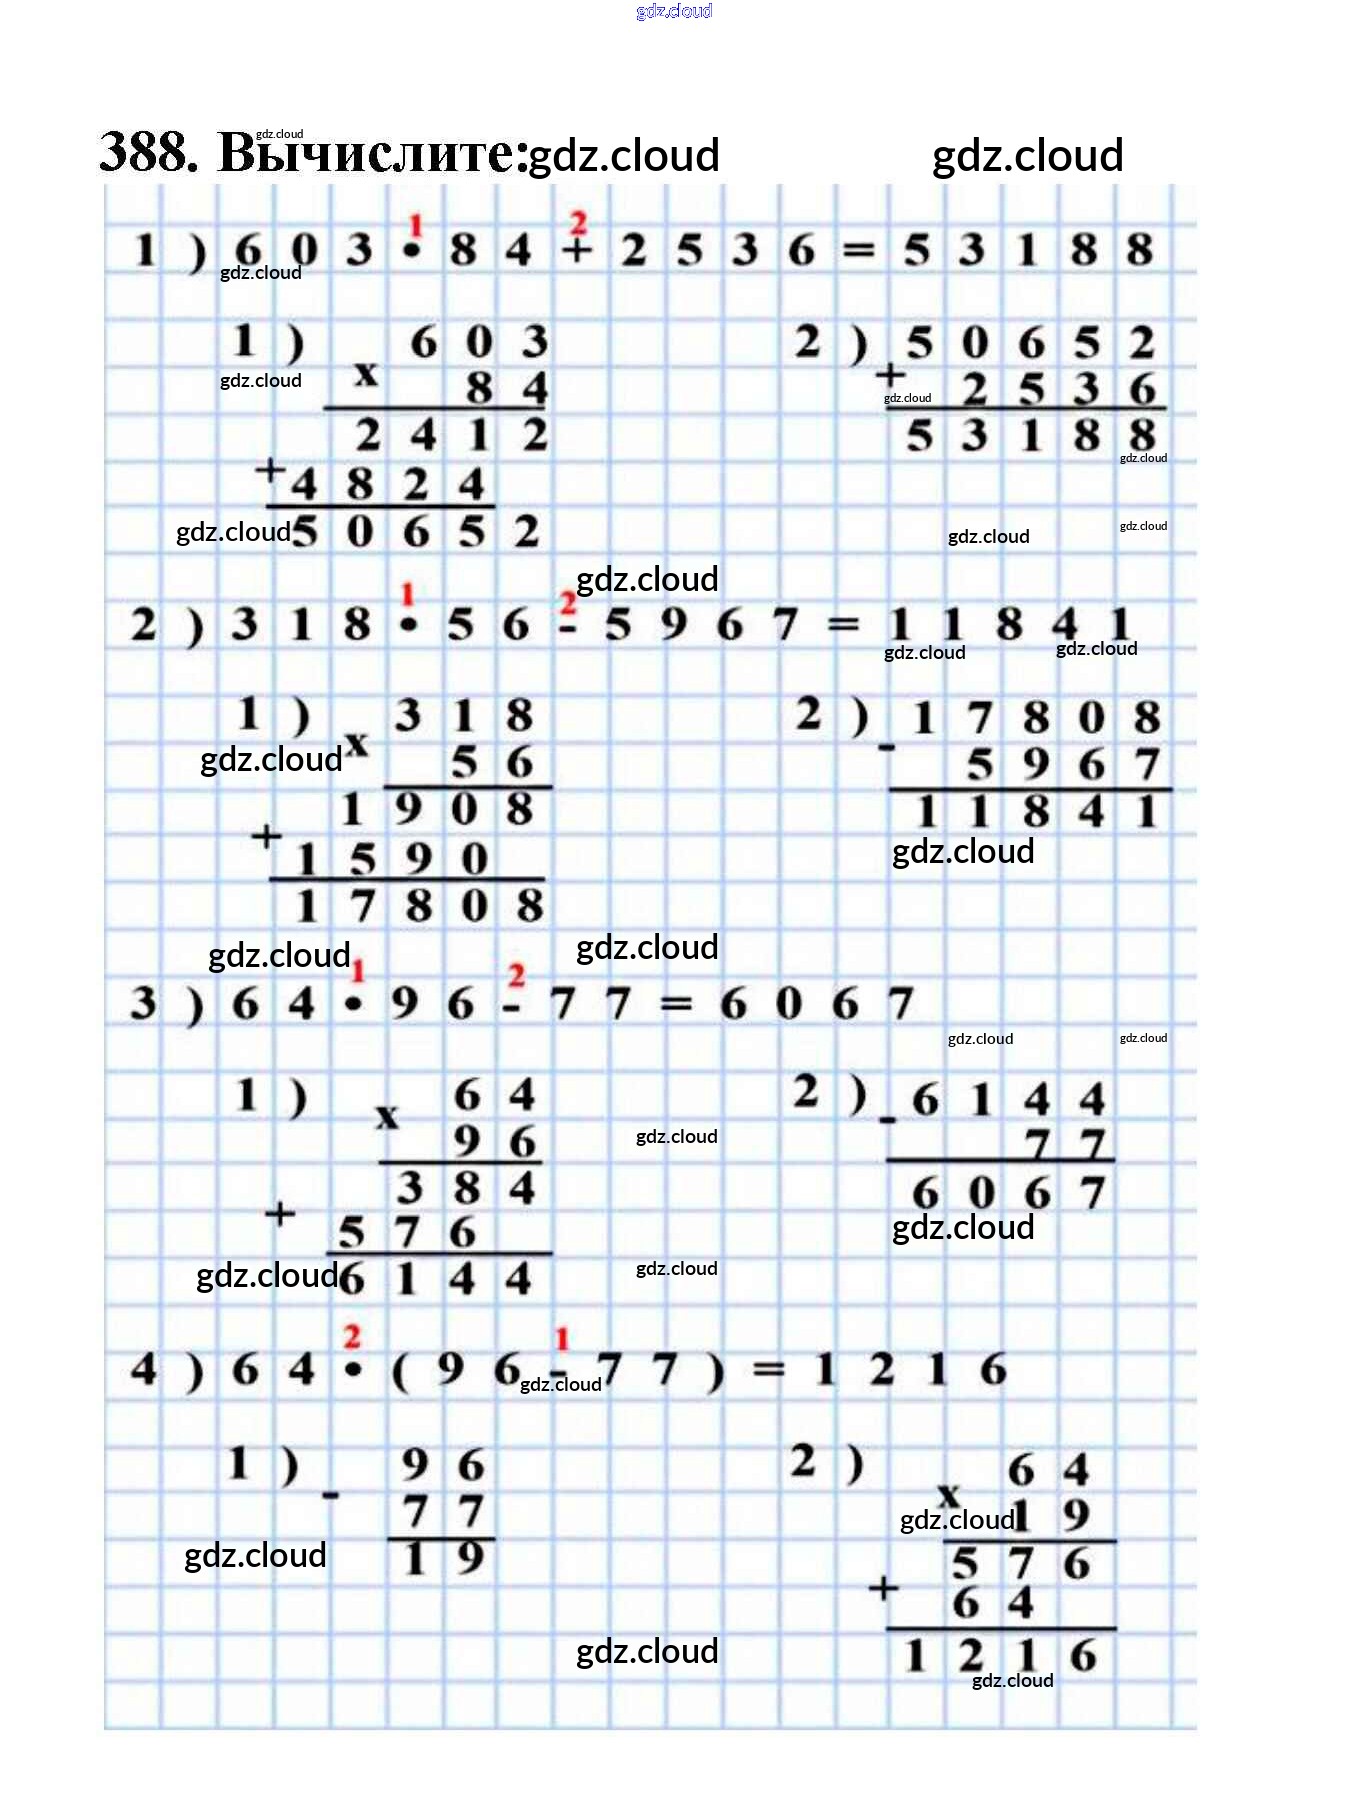 gdz.cloud
gdz.cloud
388. Вычислите: gdz.cloud gdz.cloud
1 2
1) 603 • 84 + 2536 = 53188
gdz.cloud
1) 603 2) 50652
gdz.cloud x 84 + 2536
gdz.cloud
2412 53188
gdz.cloud
+ 4824
gdz.cloud 50652 gdz.cloud gdz.cloud
gdz.cloud
1 2
2) 318 • 56 - 5967 = 11841
gdz.cloud gdz.cloud
1) 318 2) 17808
gdz.cloud x 56 - 5967
1908 11841
+ 1590 gdz.cloud
17808
gdz.cloud gdz.cloud
1 2
3) 64 • 96 - 77 = 6067
gdz.cloud gdz.cloud
1) 64 2) 6144
x 96 gdz.cloud - 77
384 6067
+ 576 gdz.cloud
gdz.cloud 6144 gdz.cloud
2 1
4) 64 • (96 - 77) = 1216
gdz.cloud
1) 96 2) 64
- 77 x gdz.cloud 19
gdz.cloud 19 576
+ 64
gdz.cloud 1216
gdz.cloud